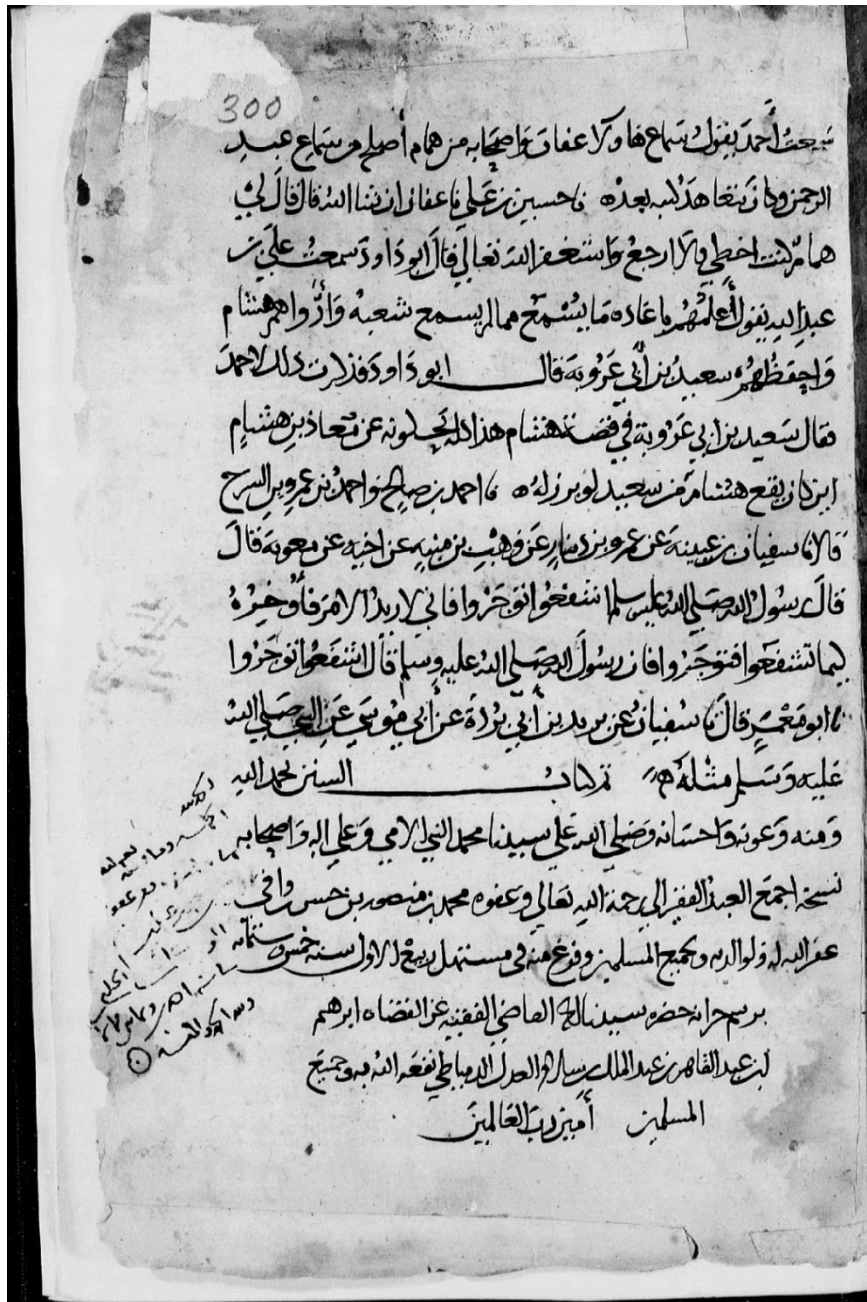 300
سمعت أحمد يقول سماع هاولا عفان واصحابه من همام أصلح من سماع عبد
الرحمن وكان يتعاهد كتبه بعده نا حسين بن علي نا عفان ان شا الله قال قال لي
همام كنت اخطي ولا ارجع واستغفر الله تعالى قال ابو داود سمعت علي بن
عبد الله يقول أعلمهم باعاده ما يسمع مما لم يسمع شعبة وأرواهم هشام
واحفظهم سعيد بن أبي عروبة قال ابو داود فذكرت ذلك لاحمد
فقال سعيد بن ابي عروبة في قصة هشام هذا كله يحكونه عن معاذ بن هشام
اين كان يقع هشام من سعيد لو برز له نا احمد بن صالح واحمد بن عمرو بن السرح
قالا نا سفيان بن عيينة عن عمرو بن دينار عن وهب بن منبه عن اخيه عن معوية قال
قال رسول الله صلى الله عليه وسلم اشفعوا توجروا فاني لاريد الامر فأوخره
كيما تشفعوا فتوجروا فان رسول الله صلى الله عليه وسلم قال اشفعوا توجروا
نا ابو معمر قال نا سفيان عن بريد بن أبي بردة عن أبي موسى عن النبي صلى الله
عليه وسلم مثله تم كتاب السنن بحمد الله
ومنه وعونه واحسانه وصلى الله على سيدنا محمد النبي الامي وعلى اله واصحابه
نسخه اجمع العبد الفقير الى رحمة الله تعالى وعفوه محمد بن منصور بن حسن
غفر الله له ولوالديه ولجميع المسلمين وفرغ منه في مستهل ربيع الاول سنة خمس وستمائة
برسم خزانة حضره سيدنا القاضي الفقيه عز القضاه ابرهيم
ابن عبد القاهر بن عبد الملك العدل الدمياطي نفعه الله به وجميع
المسلمين أمين رب العالمين